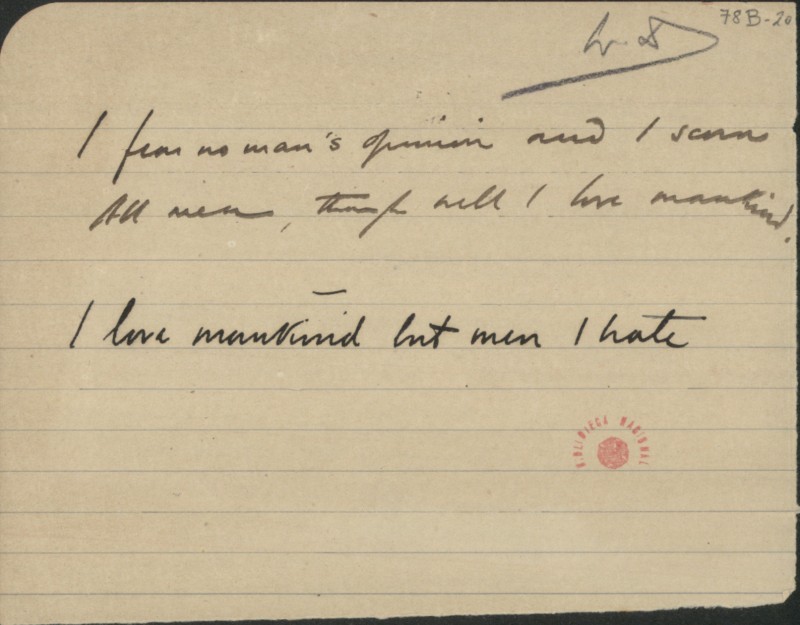 78B-20
I fear no man's opinion and I scorn
All men, though well I love mankind.
I love mankind but men I hate
BIBLIOTECA NACIONAL